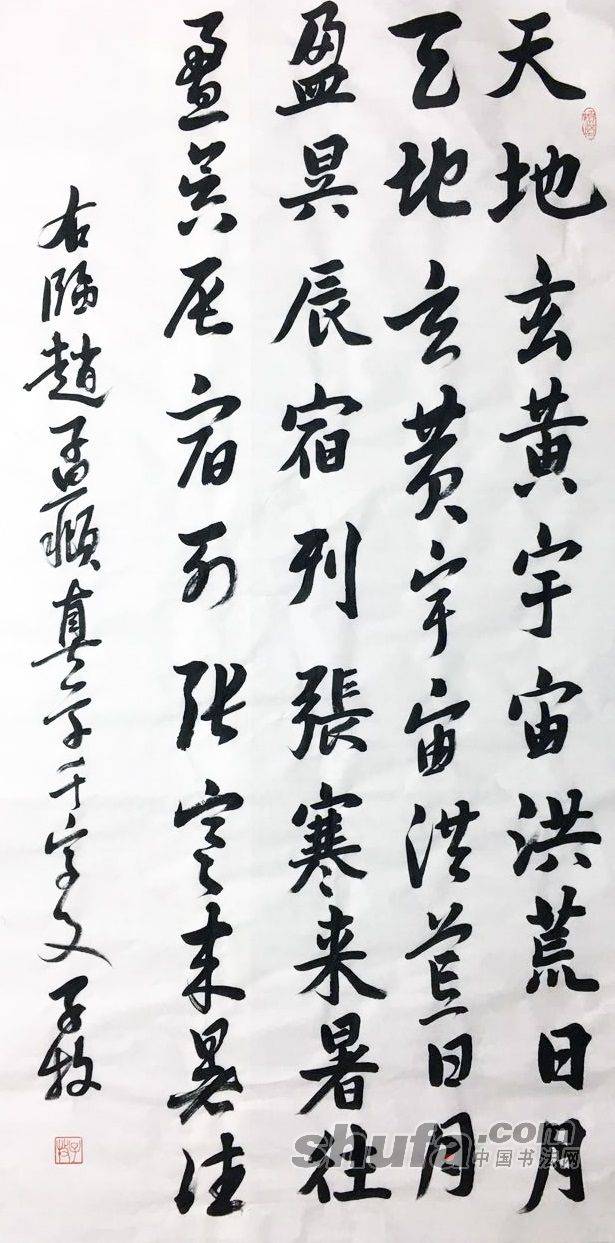 天地玄黃宇宙洪荒日月
天地玄黃宇宙洪荒日月
盈昃辰宿列張寒来暑往
盈昃辰宿列张寒来暑往
右臨趙孟頫真草千字文 子牧
shufa.com
中国书法网